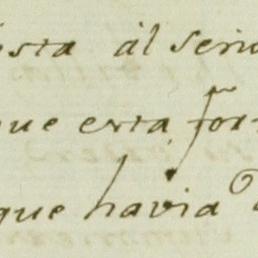 osta ál Seño
que esta for
que havia